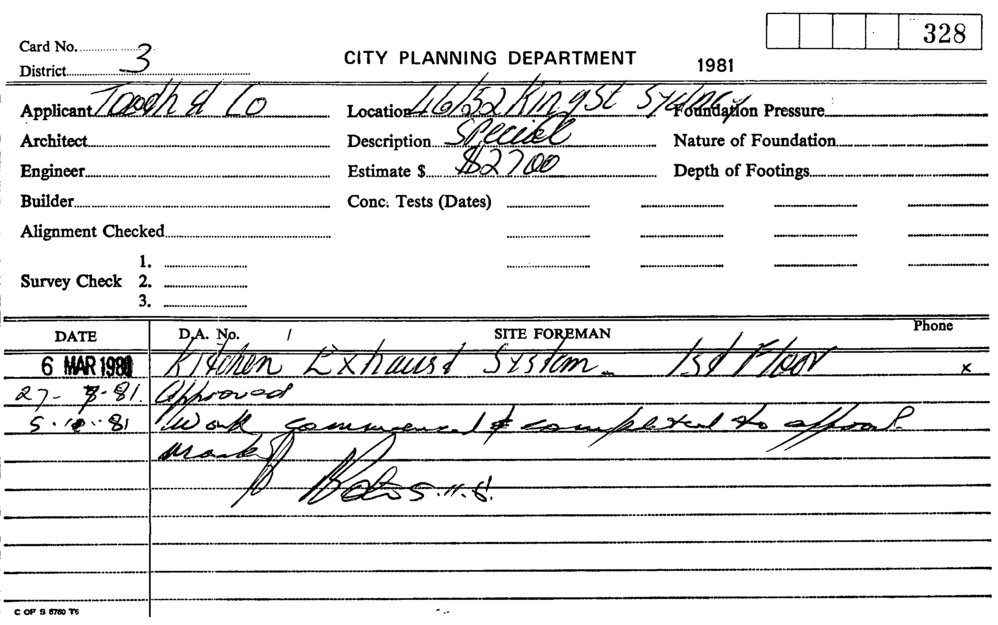 328
Card No.
District 3
CITY PLANNING DEPARTMENT 1981
Applicant Tooth & Co Location 46/52 King St Sydney Foundation Pressure
Architect Description Special Nature of Foundation
Engineer Estimate $ $2700 Depth of Footings
Builder Conc. Tests (Dates)
Alignment Checked
1.
Survey Check 2.
3.
DATE D.A. No. / SITE FOREMAN Phone
6 MAR 1981 Kitchen Exhaust System - 1st Floor x
27- 7-81. Approved
5.10.81 Work commenced & completed to
5.11.81.
C OF S 6760 T6